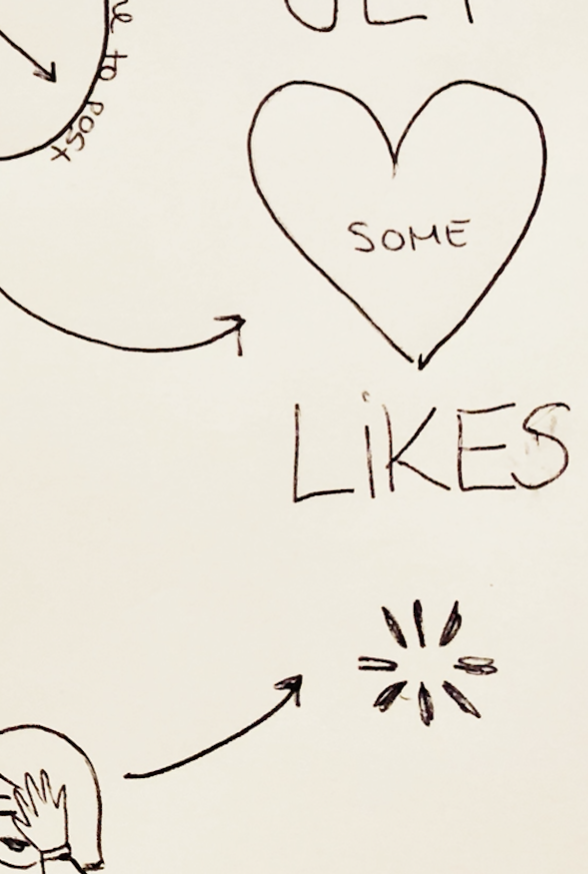 GET
to post
SOME
LiKES